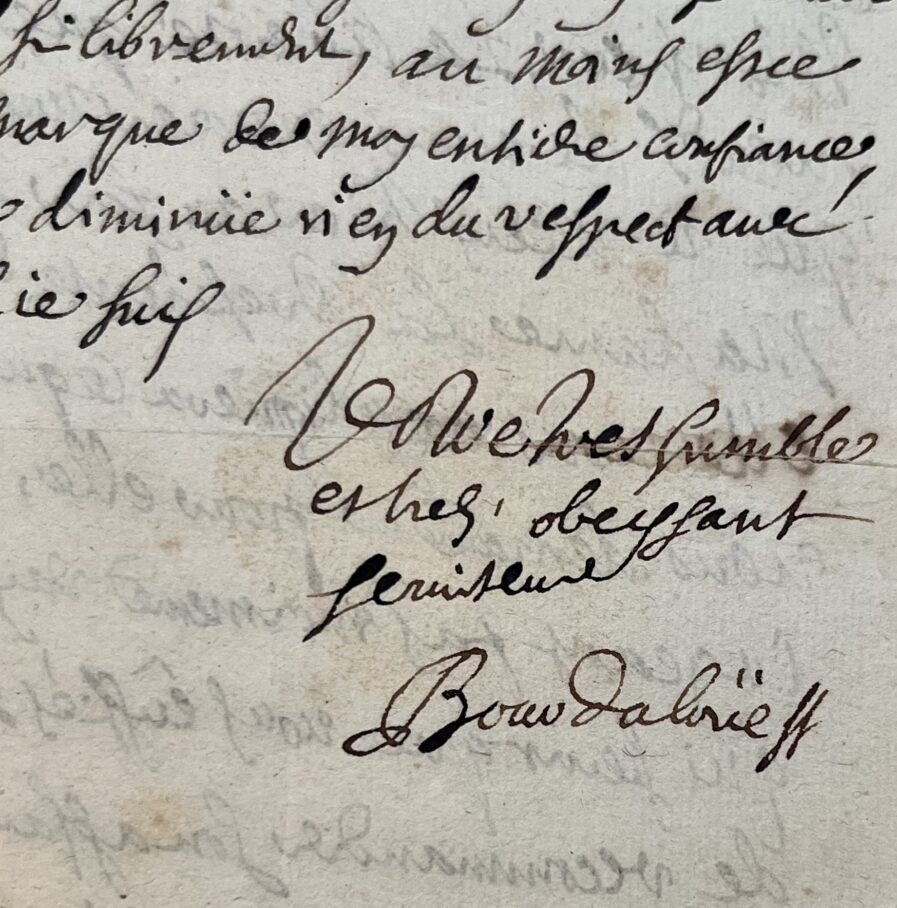 si librement, au moins esce
marque de moy entiere confiance,
diminüe rien du respect auec
ie suis
Vostre tres humble
et tres obeyssant
seruiteur
Bourdaloüe